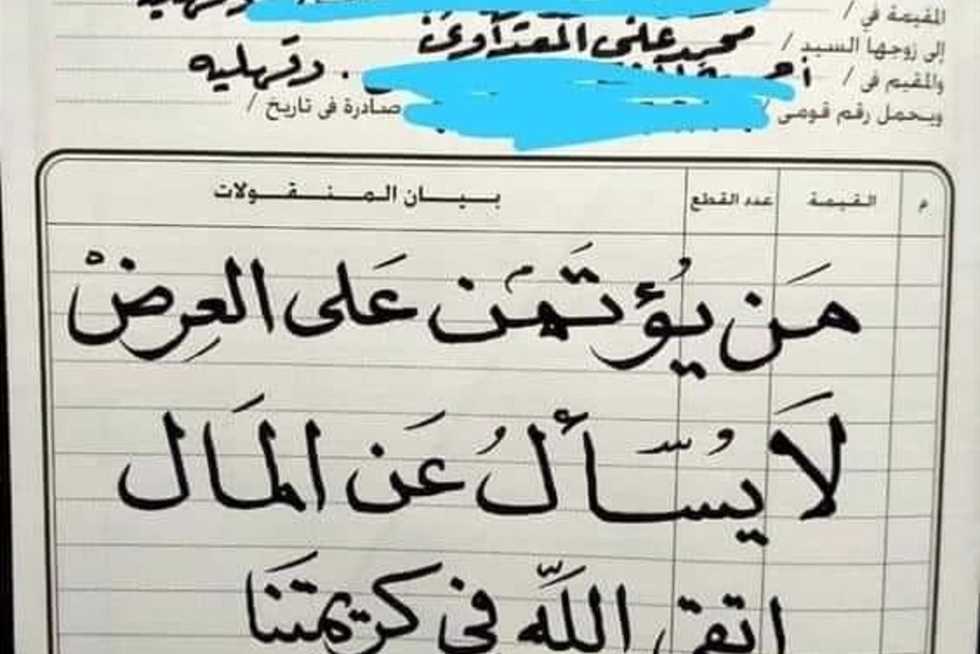 المقيمة في /
إلى زوجها السيد / محمد علي المعداوي
والمقيم في / دقهليه
ويحمل رقم قومى / صادرة فى تاريخ /
م القيمة عدد القطع بيان المنقولات
مَن يُؤتَمَن عَلى العِرضْ
لَا يُسأَلُ عَن المَال
اتقِ اللَّه في كريمتنَا